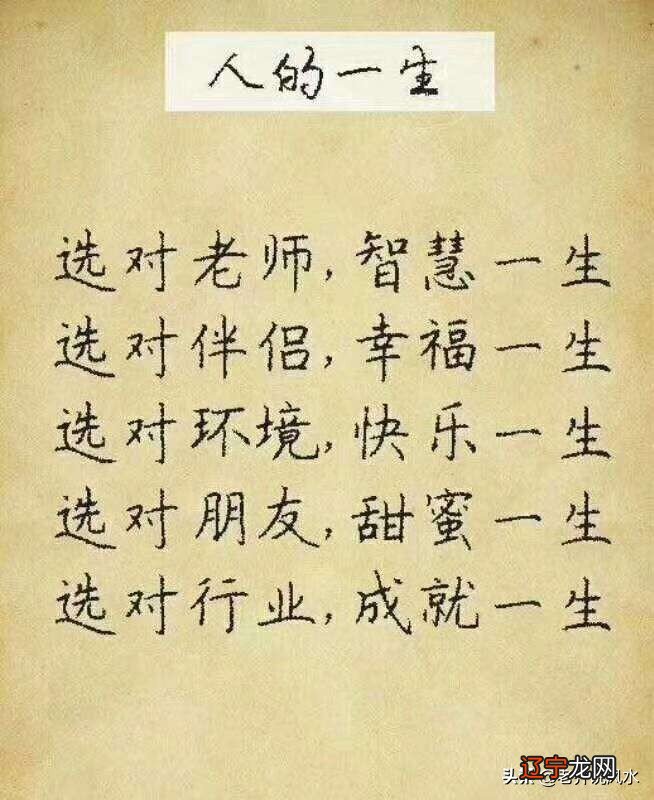 人的一生
选对老师,智慧一生
选对伴侣,幸福一生
选对环境,快乐一生
选对朋友,甜蜜一生
选对行业,成就一生
辽宁龙网
头条 @老井说风水